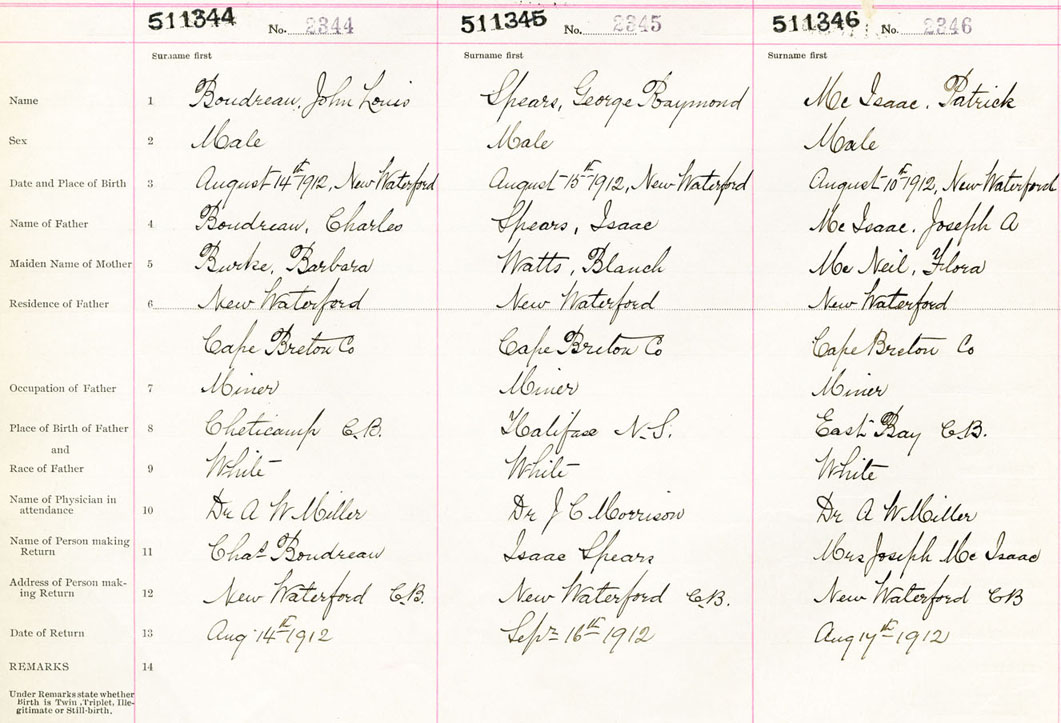 511344 No. 2344 511345 No. 2345 511346 No. 2346
Surname first Surname first Surname first
Name 1 Boudreau, John Louis Spears, George Raymond Mc Isaac, Patrick
Sex 2 Male Male Male
Date and Place of Birth 3 August 14th 1912, New Waterford August 15th 1912, New Waterford August 10th 1912, New Waterford
Name of Father 4 Boudreau, Charles Spears, Isaac Mc Isaac, Joseph A
Maiden Name of Mother 5 Burke, Barbara Watts, Blanch Mc Neil, Flora
Residence of Father 6 New Waterford New Waterford New Waterford
Cape Breton Co Cape Breton Co Cape Breton Co
Occupation of Father 7 Miner Miner Miner
Place of Birth of Father 8 Cheticamp C.B. Halifax N.S. East Bay C.B.
and
Race of Father 9 White White White
Name of Physician in
attendance 10 Dr A W Miller Dr J C Morrison Dr A W Miller
Name of Person making
Return 11 Chas Boudreau Isaac Spears Mrs Joseph Mc Isaac
Address of Person mak-
ing Return 12 New Waterford C.B. New Waterford C.B. New Waterford CB
Date of Return 13 Aug 14th 1912 Sept 16th 1912 Aug 17th 1912
REMARKS 14
Under Remarks state whether
Birth is Twin, Triplet, Ille-
gitimate or Still-birth.